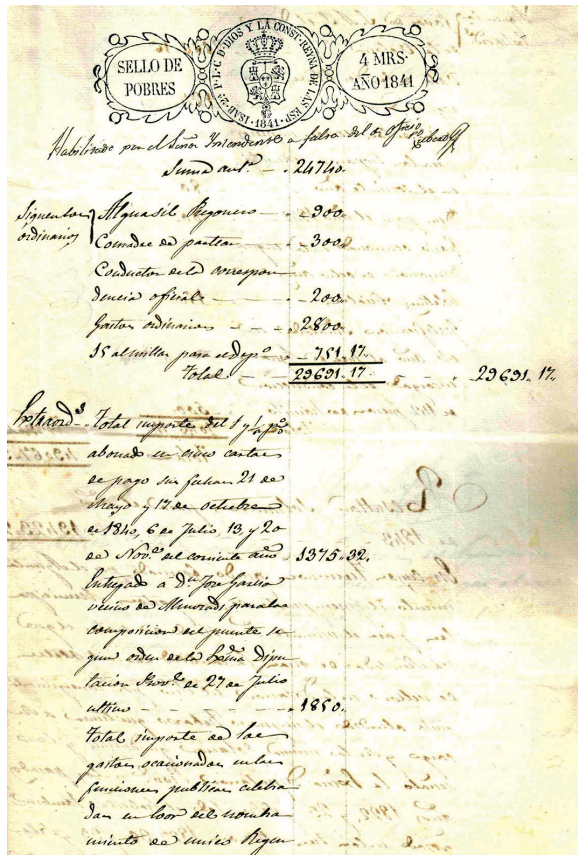 SELLO DE POBRES
ISAB. 2ª P. L. C. D. DIOS Y LA CONST. REYNA DE LAS ESP.
·1841·
4 MRS. AÑO 1841
Habilitado por el Señor Intendente a falta del de oficio
Suma antr. - - 24740.
Siguen los ordinarios
Alguasil Pregonero - - 900.
Comadre de partear - - 300.
Conductor de la correspon
dencia oficial - - 200.
Gastos ordinarios - - - 2800.
15 almillas para el dep.º - 751.17.
Total - - 29691.17. - - 29691.17.
Extraord.s
Total importe del 1 y ½ p%
abonado en cinco cartas
de pago sus fechas 21 de
Mayo y 17 de Octubre
de 1840, 6 de Julio, 13, y 20
de Nov.e del corriente año 1375.32.
Entregado a D.n Jose Garcia
vecino de para la
composicion del puente se
gun orden de la Exma Dipu
tacion Prov.l de 27 de Julio
ultimo - - - - 1850.
Total importe de los
gastos ocacionados en las
funciones publicas celebra
das en loor del nombra
miento de unico Regen